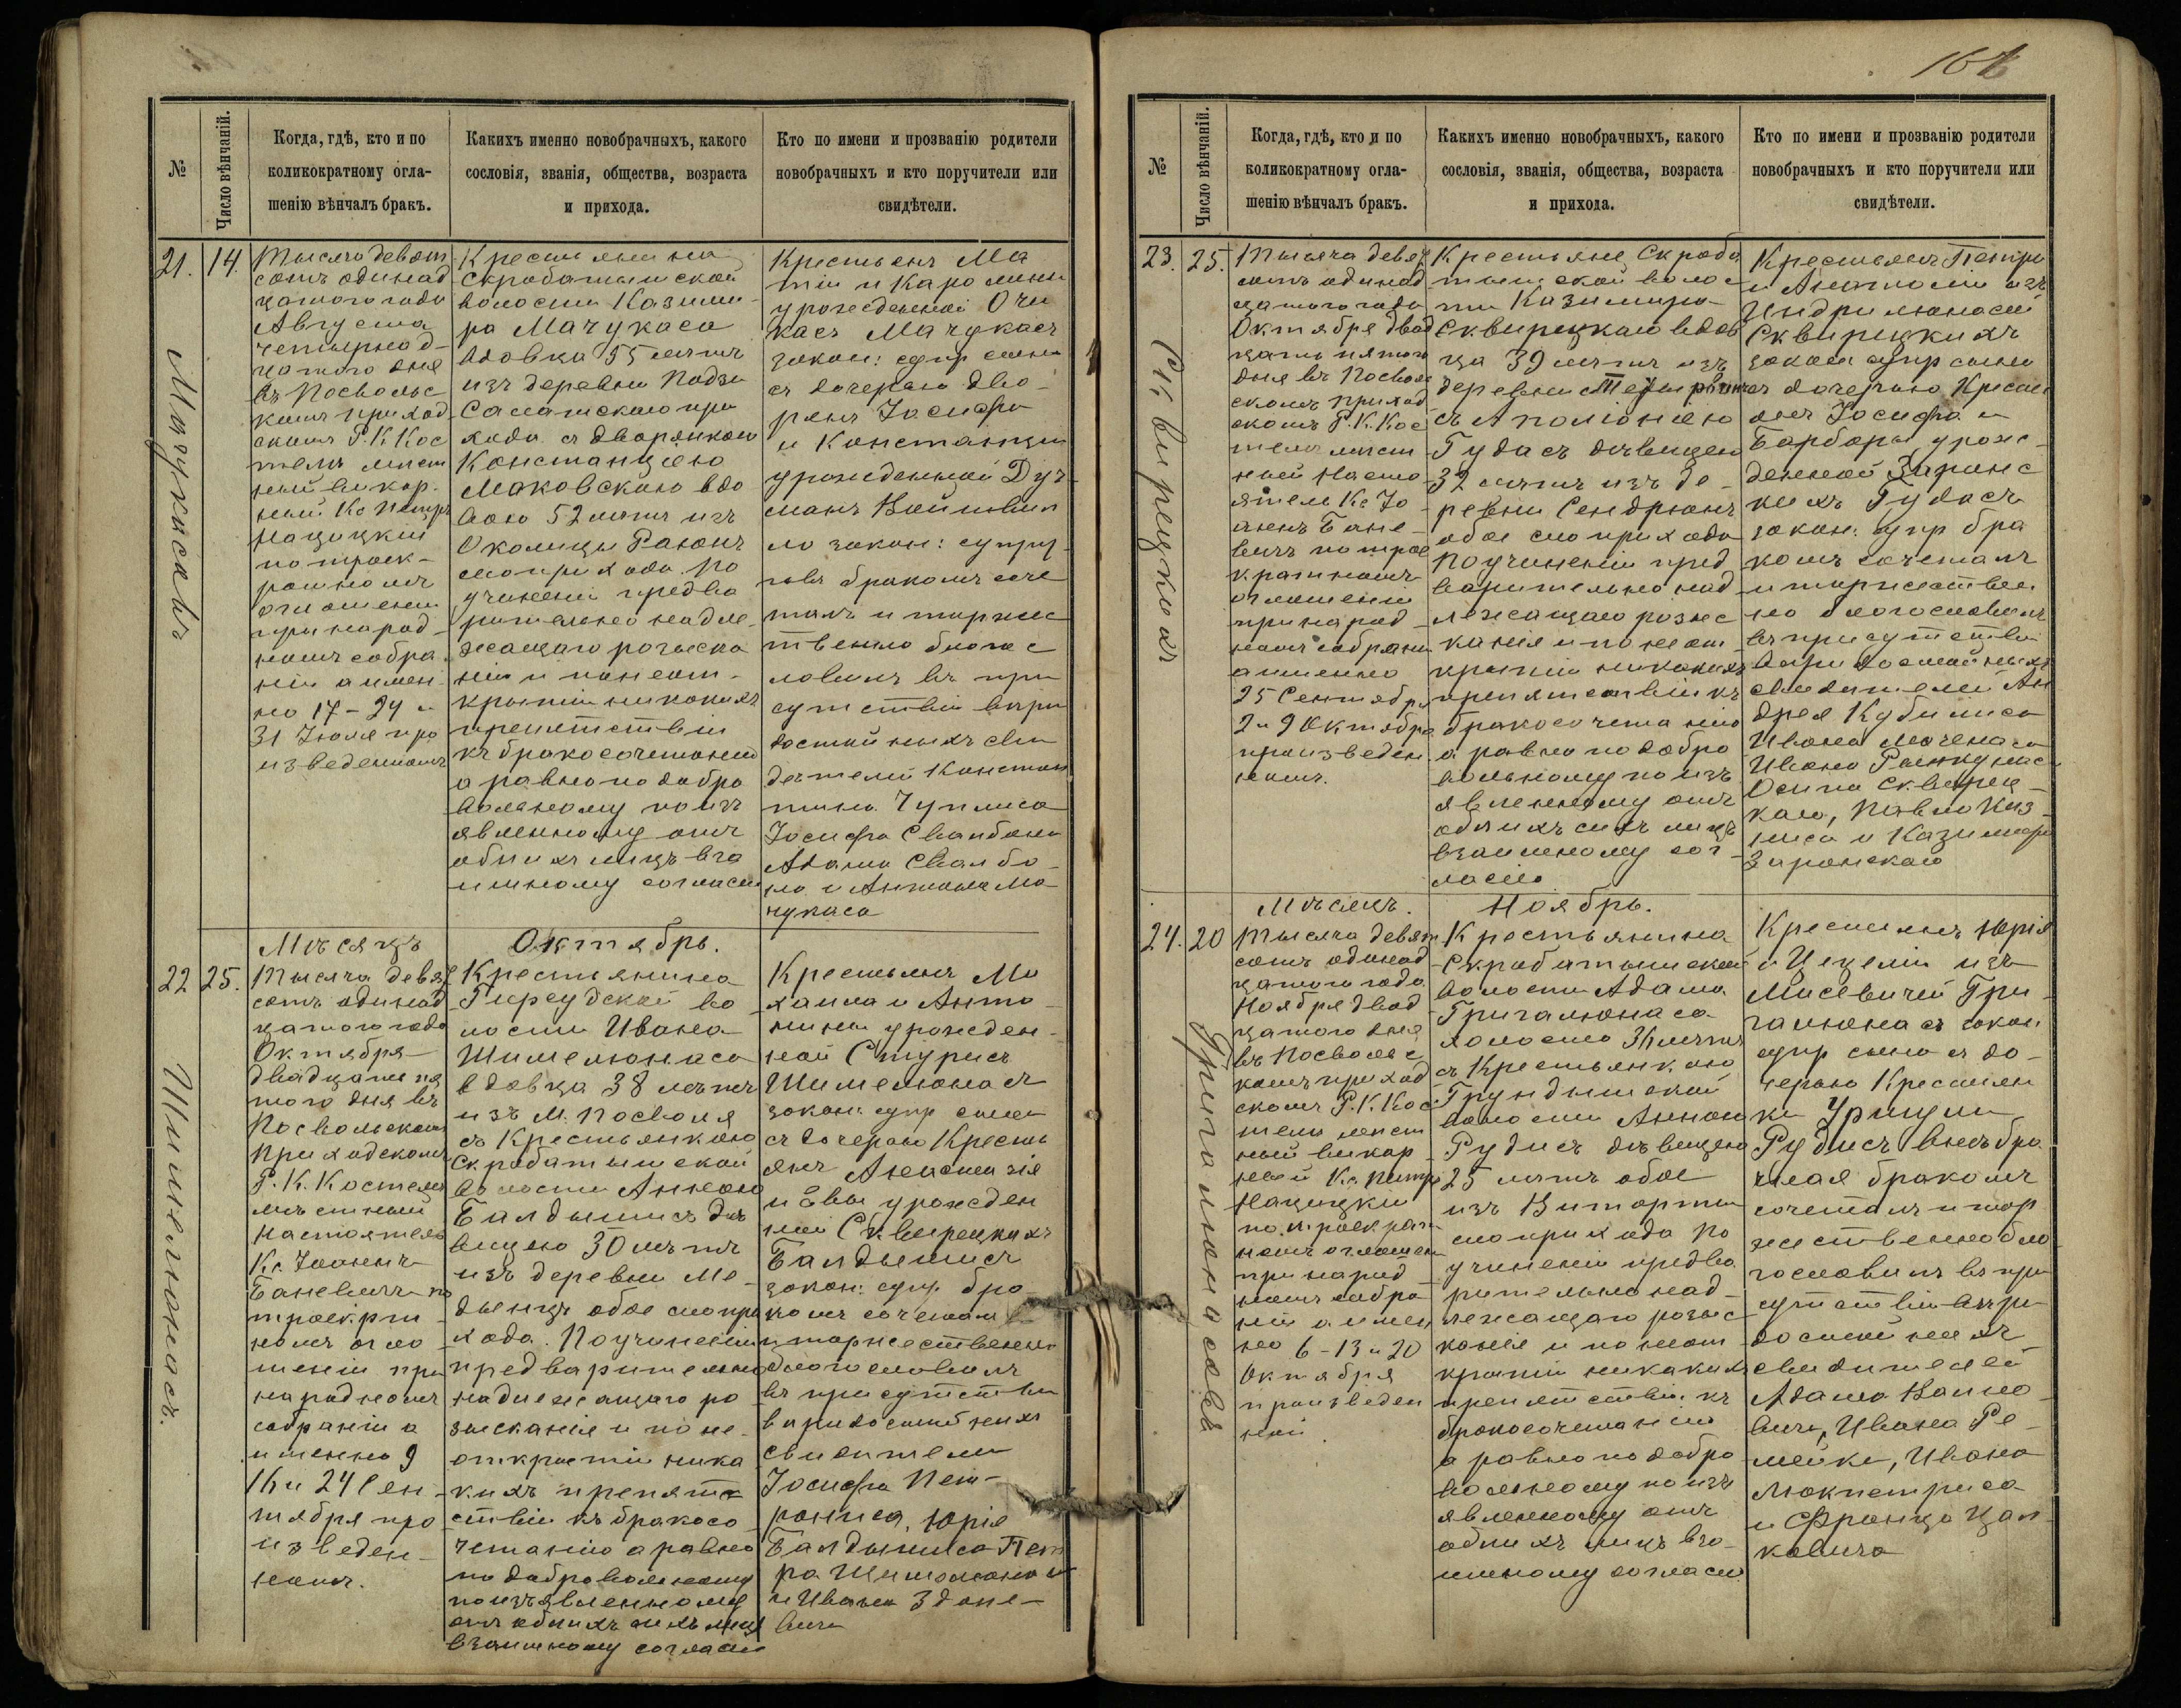 166
№
Число вѣнчаній.
Когда, гдѣ, кто и по
коликократному огла-
шенію вѣнчалъ бракъ.
Какихъ именно новобрачныхъ, какого
сословія, званія, общества, возраста
и прихода.
Кто по имени и прозванію родители
новобрачныхъ и кто поручители или
свидѣтели.
21.
14.
Мачукасъ
Тысяча девят
сотъ одинад
цатого года
Августа
четырнад-
цатого дня
въ Посвольс
комъ приход
скомъ Р. К. Кос
телѣ мѣст
ный викар-
ный Кс Петръ
Нацицкій
по троек-
ратномъ
оглошеніи
при народ-
номъ собра
ніи а имен-
но 17 - 24 и
31 Іюля про
изведенномъ
Крестьянина
Скробатышской
волости Казими
ра Мачукаса
вдовца 55 лѣтъ
изъ деревни Подзи
Салатскаго при
хода съ дворянкою
Констанціею
Маковскою вдо
вою 52 лѣтъ изъ
Околицы Раюнъ
сего прихода. По
учиненіи предва
рительно надле-
жащаго розыска
нія и по неот-
крытіи никакихъ
препятствій
къ бракосочетанію
а равно по добро
вольному по изъ
явленному отъ
обѣихъ лицъ вза
имному согласію
Крестьянъ Ма
тіи и Каролины
урожденной Очи
касъ Мачукасъ
закон: супр сына
съ дочерью Дво-
рянъ Іосифа
и Констанціи
урожденной Дуч-
манъ Войшвил
ло закон: супру-
говъ бракомъ соче
талъ и торжес
твенно благос
ловилъ въ при
сутствіи вѣри
достойныхъ сви
детелей Констан
тина Чуплиса
Іосифа Сванбона
Адама Сванбо-
на и Антона Ма-
чукаса
Мѣсяцъ
Октябрь.
22
25.
Шимелюнасъ.
Тысяча девят
сотъ одинад
цатого года
Октября
двадцать пя
того дня въ
Посвольскомъ
приходскомъ
Р. К. Костелѣ
мѣстный
Настоятель
Кс. Іоаннъ
Баневичъ по
троекрат
номъ огло
шеніи при
народномъ
собраніи а
именно 9
16 и 24 Сен-
тября про
изведен-
номъ.
Крестьянина
Гиреудской во
лости Ивана
Шимелюнаса
вдовца 38 лѣтъ
изъ М. Посволя
съ Крестьянкою
Скробатышской
волости Анною
Балдышисъ дѣ
вицею 30 лѣтъ
изъ деревни Ме-
дынцъ обое сего при
хода. По учиненіи
предварительно
надлежащаго ро
зысканія и по не-
открытіи ника
кихъ препят-
ствій къ бракосо
четанію а равно
по добровольному
по изъявленному
отъ обѣихъ сихъ лицъ
взаимному согласію
Крестьянъ Ми
хаила и Анто-
нины урожден-
ной Стурисъ
Шимелюнасъ
закон: супр сына
съ дочерью Кресть
янъ Анастазія
и Евы урожден
ной Сквирецкихъ
Балдышисъ
закон: супр. бра
комъ сочеталъ
и торжественно
благословилъ
въ присутствіи
вѣридостойныхъ
свидѣтелей
Іосифа Пет-
рониса, Юрія
Балдышиса Пет
ра Шимолюнаса
и Ивана Здане-
вича
№
Число вѣнчаній.
Когда, гдѣ, кто и по
коликократному огла-
шенію вѣнчалъ бракъ.
Какихъ именно новобрачныхъ, какого
сословія, званія, общества, возраста
и прихода.
Кто по имени и прозванію родители
новобрачныхъ и кто поручители или
свидѣтели.
23.
25.
Сквирецкихъ
Тысяча девят
сотъ одинад
цатого года
Октября двад
цать пятого
дня въ Посволь
скомъ приход
скомъ Р. К. Кос
телѣ мѣст
ный Насто
ятель Кс Іо
аннъ Бане-
вичъ по трое
кратномъ
оглошеніи
при народ-
номъ собраніи
а именно
25 Сентября
2 и 9 Октября
произведен
номъ.
Крестьяне Скроба
тышской волос
ти Казимира
Сквирецкаго вдов
ца 39 лѣтъ изъ
деревни
съ Аполіонею
Гудасъ дѣвицею
32 лѣтъ изъ де-
ревни Сендрюнъ
обое сего прихода
По учиненіи пред
варительно над
лежащаго розыс
канія и по неот
крытіи никакихъ
препятствій къ
бракосочетанію
а равно по добро
вольному по изъ
явленному отъ
обѣихъ сихъ лицъ
взаимному сог-
ласію
Крестьянъ Петра
и Анатоліи изъ
Индрилюнасъ
Сквирецкихъ
закон супр сына
съ дочерью Кресть
янъ Іосифа и
Барбары урож-
денной Заринс
кихъ Гудасъ
закон: супр бра
комъ сочеталъ
и торжествен
но благословилъ
въ присутствіи
вѣридостойныхъ
свидѣтелей Ан
дрея Кубилиса
Ивана Мочена
Ивана
Осипа Сквирец-
каго, Павла Киз-
лиса и Казимира
Заронскаго
Мѣсяцъ.
Ноябрь.
24.
20
Григалюнасовъ
Тысяча девят
сотъ одинад
цатого года
Ноября двад
цатого дня
въ Посвольс
комъ приход
скомъ Р. К. Кос
телѣ мѣст
ный викар
ный Кс. Петръ
Нацицкій
по троекрат
номъ оглошен
при народ-
номъ собра
ніи а имен
но 6 - 13 и 20
Октября
произведен
ной.
Крестьянина
Скробатышской
волости Адама
Григалюнаса
холостого 36 лѣтъ
съ Крестьянкою
Грундышской
волости Анною
Рудисъ дѣвицею
25 лѣтъ обое
изъ Виторты
сего прихода По
учиненіи предва
рительно над-
лежащаго розыс
канія и по неот
крытіи никакихъ
препятствій къ
бракосочетанію
а равно по добро
вольному по изъ
явленному отъ
обѣихъ лицъ вза-
имному согласію
Крестьянъ Юрія
и Цециліи изъ
Мисевичей Гри-
галюнасъ закон
супр сына съ до-
черью Крестьян
ки Уршули
Рудисъ внѣбра
чная бракомъ
сочеталъ и тор
жественно бла
гословилъ въ при
сутствіи вѣри-
достойныхъ
свидѣтелей
Адама Каино-
вича, Ивана Ре-
мейки, Ивана
Люкпетриса
и Франца Цап-
ковича